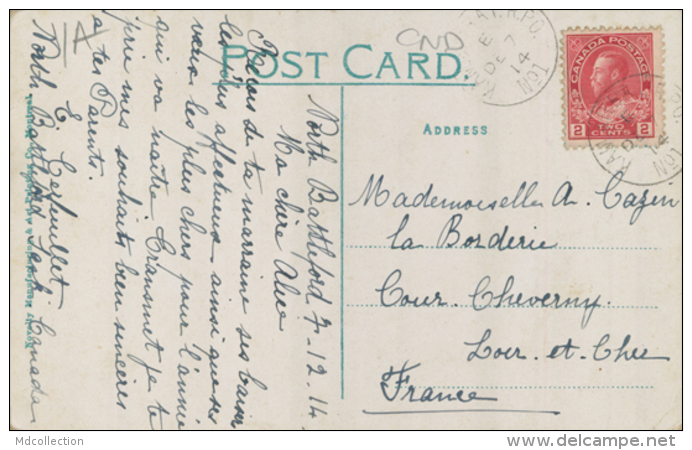 POST CARD.
CND
ADDRESS
CANADA POSTAGE
2 TWO CENTS 2
R.P.O.
E
DE 7
14
No 1
Mademoiselle A. Cazin
la Borderie
Cour. Cheverny.
Loir. et. Cher
France
North Battleford 7-12-14
Ma chère
Reçois de ta marraine ses baisers
les plus affectueux ainsi que ses
vœux les plus chers pour l'année
qui va naître. Transmet je te
prie mes souhaits bien sincères
a tes Parents.
E.
North Battleford Sask Canada
Mdcollection